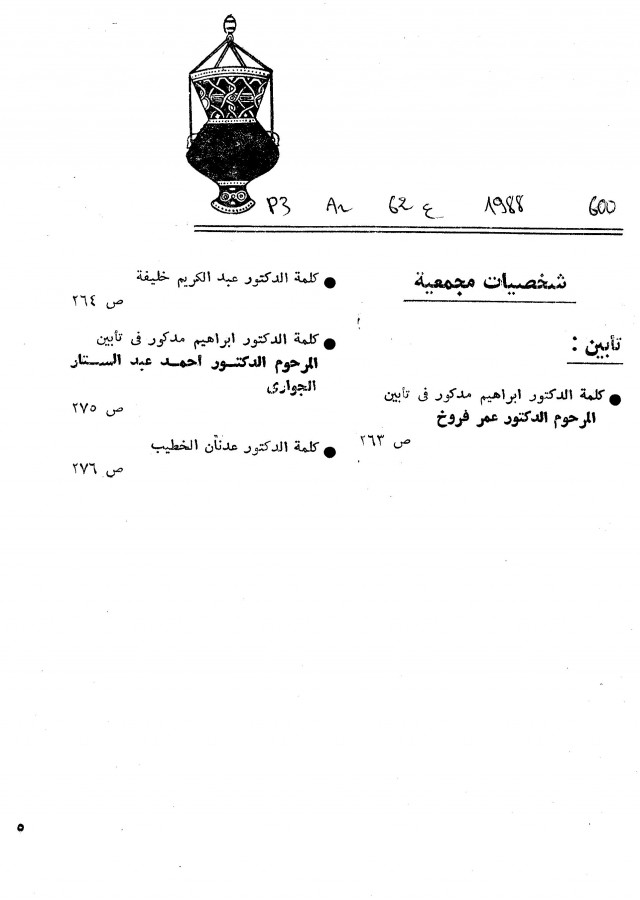 P3 Ar 62 ع 1988 600
شخصيات مجمعية
تأبين :
● كلمة الدكتور ابراهيم مدكور فى تأبين
المرحوم الدكتور عمر فروخ
ص ٢٦٣
● كلمة الدكتور عبد الكريم خليفة
ص ٢٦٤
● كلمة الدكتور ابراهيم مدكور فى تأبين
المرحوم الدكتور احمد عبد الستار
الجوارى
ص ٢٧٥
● كلمة الدكتور عدنان الخطيب
ص ٢٧٦
٥